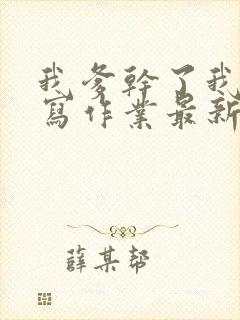 我爹幹了我
寫作業最新
薛某幫